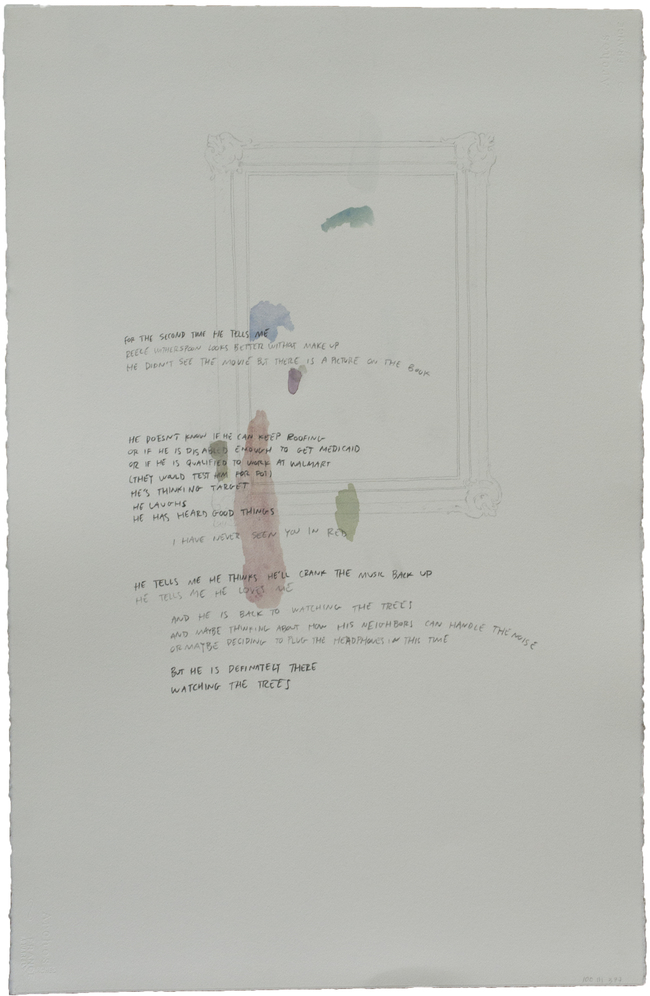 FOR THE SECOND TIME HE TELLS ME
REESE WITHERSPOON LOOKS BETTER WITHOUT MAKE UP
HE DIDN'T SEE THE MOVIE BUT THERE IS A PICTURE ON THE BOOK
HE DOESN'T KNOW IF HE CAN KEEP ROOFING
OR IF HE IS DISABLED ENOUGH TO GET MEDICAID
OR IF HE IS QUALIFIED TO WORK AT WALMART
(THEY WOULD TEST HIM FOR POT)
HE'S THINKING TARGET
HE LAUGHS
HE HAS HEARD GOOD THINGS
I HAVE NEVER SEEN YOU IN RED
HE TELLS ME HE THINKS HE'LL CRANK THE MUSIC BACK UP
HE TELLS ME HE LOVES ME
AND HE IS BACK TO WATCHING THE TREES
AND MAYBE THINKING ABOUT HOW HIS NEIGHBORS CAN HANDLE THE NOISE
OR MAYBE DECIDING TO PLUG THE HEADPHONES IN THIS TIME
BUT HE IS DEFINATELY THERE
WATCHING THE TREES